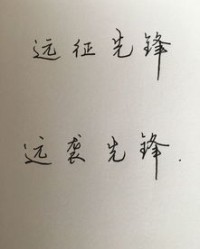 远征先锋
远袭先锋.